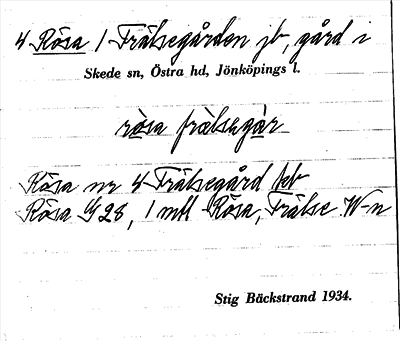 4 Rösa 1 Frälsegården jb, gård i
Skede sn, Östra hd, Jönköpings l.
rösa frälsegår
Rösa nr 4 Frälsegård jb
Rösa G28, 1 mtl Rösa, Frälse W-n
Stig Bäckstrand 1934.